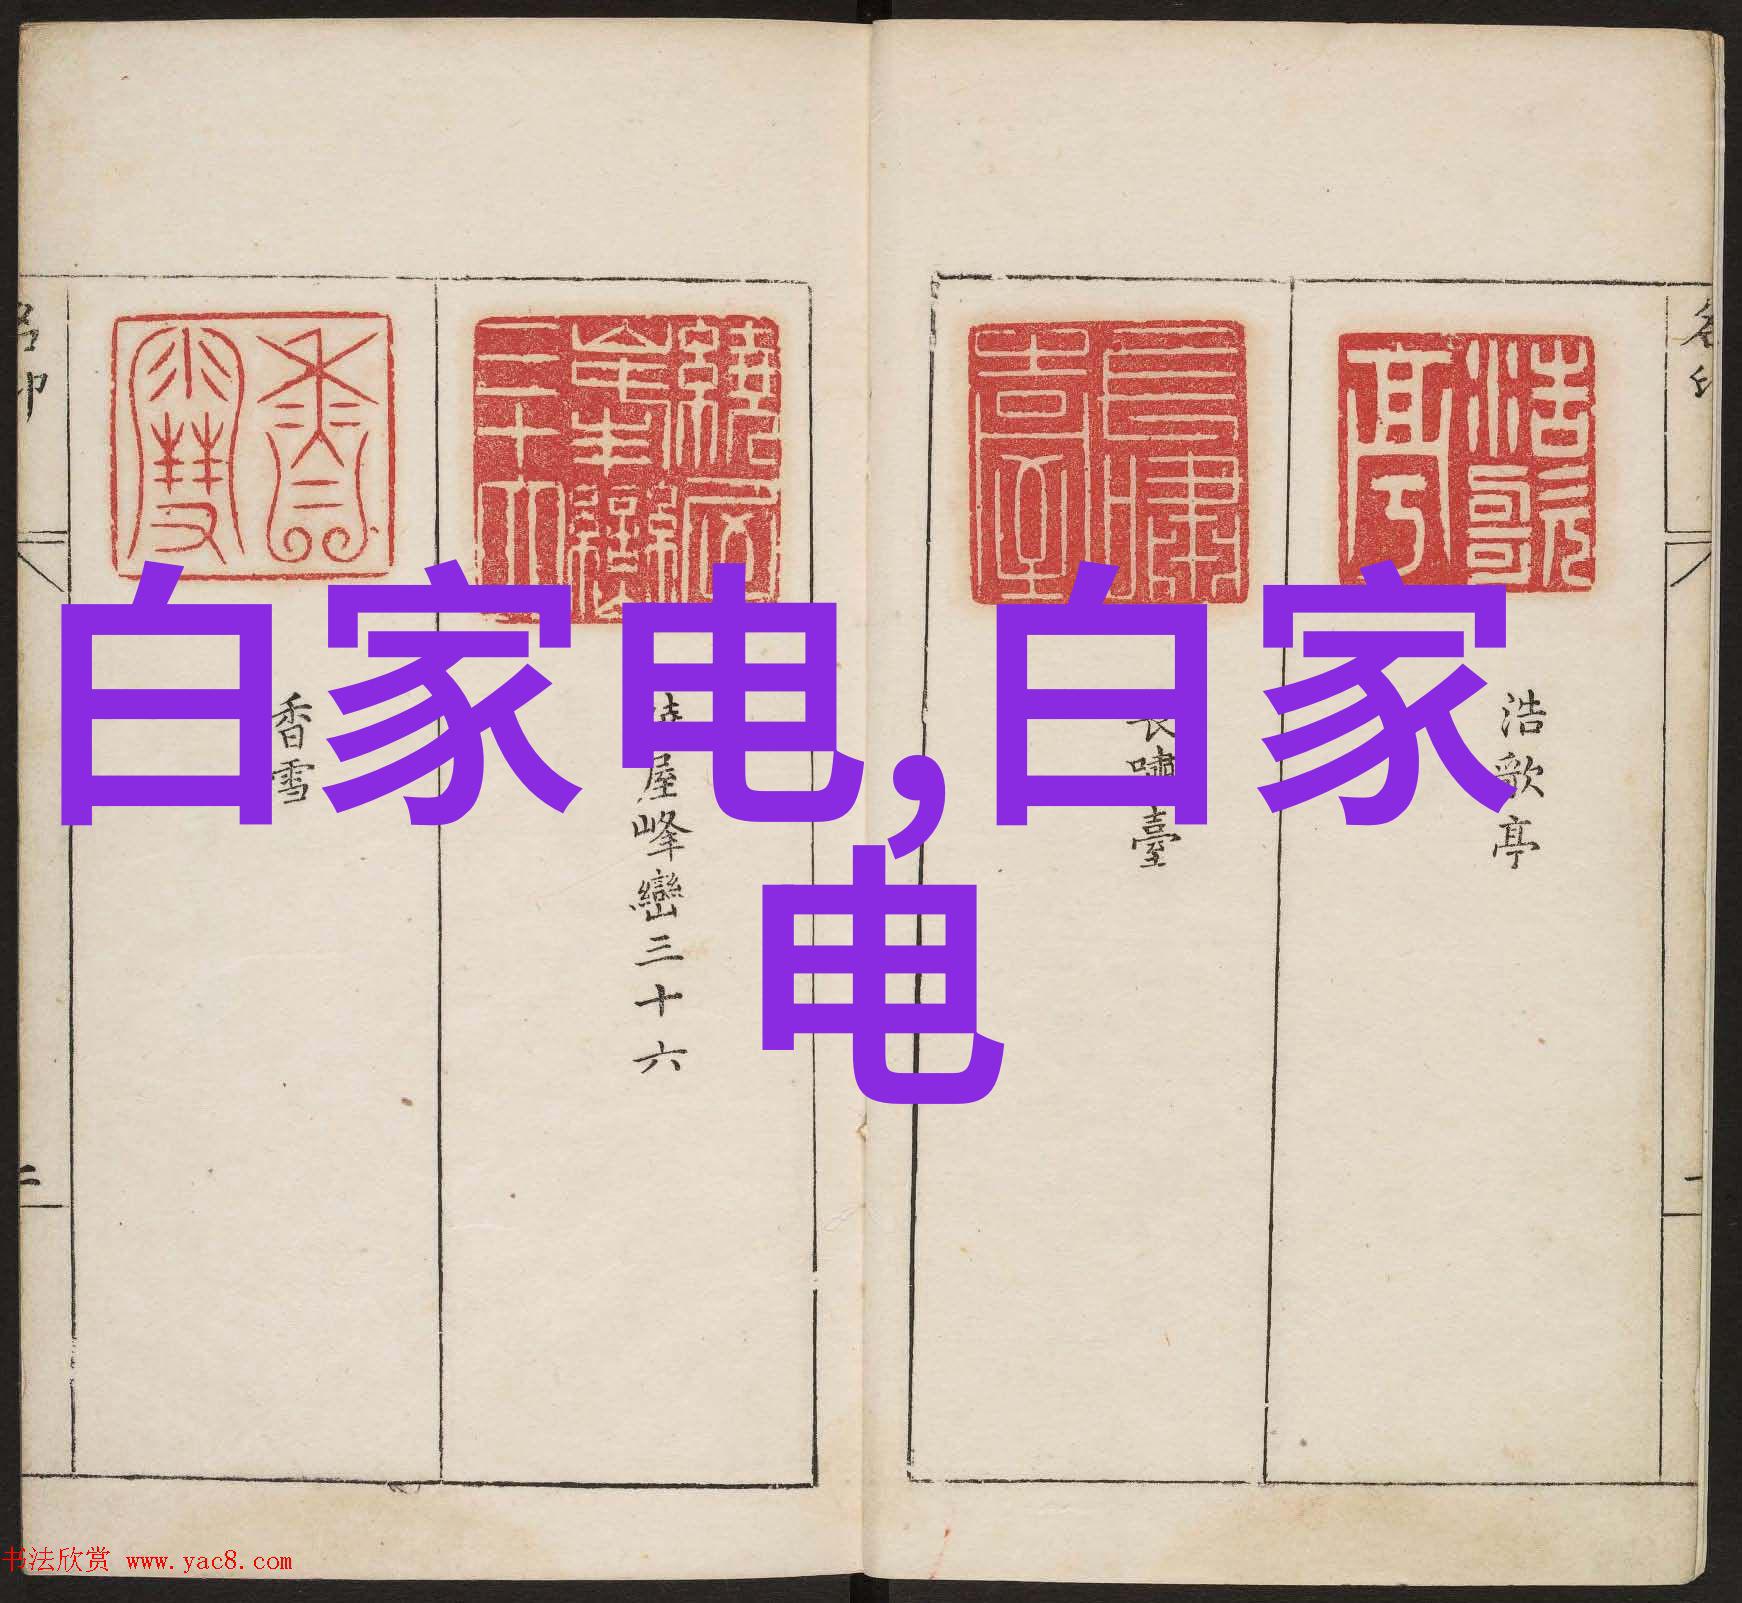 浩歌亭
長嘯臺
繞屋峰巒三十六
香雪
白家电,白家
电
书法欣赏 www.yac8.com